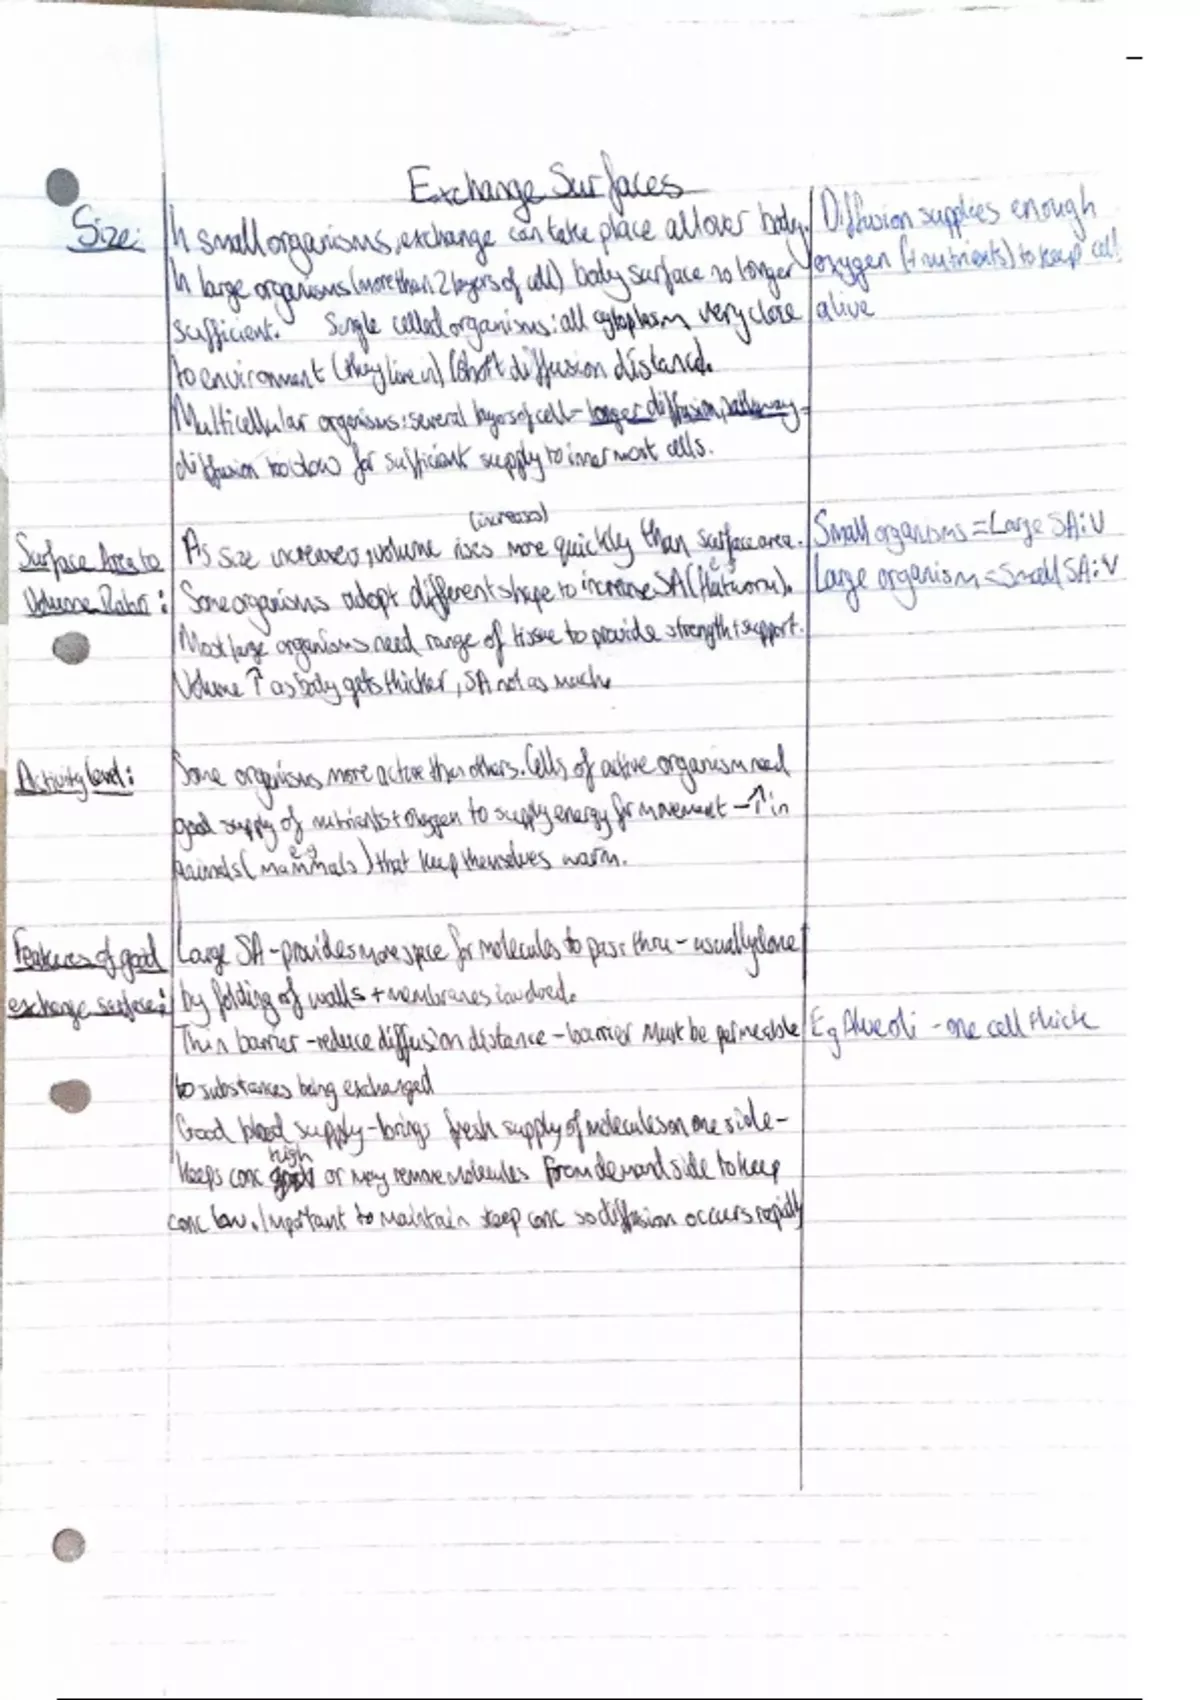 Exchange Surfaces
Size:
In small organisms, exchange can take place all over body.
In large organisms (more than 2 layers of cell) body surface no longer
sufficient. Single celled organisms: all cytoplasm very close
to environment (they live in) (short diffusion distance.
Multicellular organisms: several layers of cell - longer diffusion pathway -
diffusion too slow for sufficient supply to inner most cells.
Diffusion supplies enough
oxygen (+ nutrients) to keep cell
alive
Surface Area to
Volume Ratio:
(increases)
As size increases, volume rises more quickly than surface area.
Some organisms adopt different shape to increase SA (eg flatworm).
Most large organisms need range of tissue to provide strength + support.
Volume ↑ as body gets thicker, SA not as much
Small organisms = Large SA:V
Large organism = Small SA:V
Activity level:
Some organisms more active than others. Cells of active organism need
good supply of nutrients + oxygen to supply energy for movement - ↑ in
animals (eg mammals) that keep themselves warm.
Features of good
exchange surface:
Large SA - provides more space for molecules to pass thru - usually done
by folding of walls + membranes involved.
Thin barrier - reduce diffusion distance - barrier must be permeable
to substances being exchanged
Good blood supply - brings fresh supply of molecules on one side -
keeps conc high or may remove molecules from demand side to keep
conc low. Important to maintain steep conc so diffusion occurs rapidly
Eg Alveoli - one cell thick